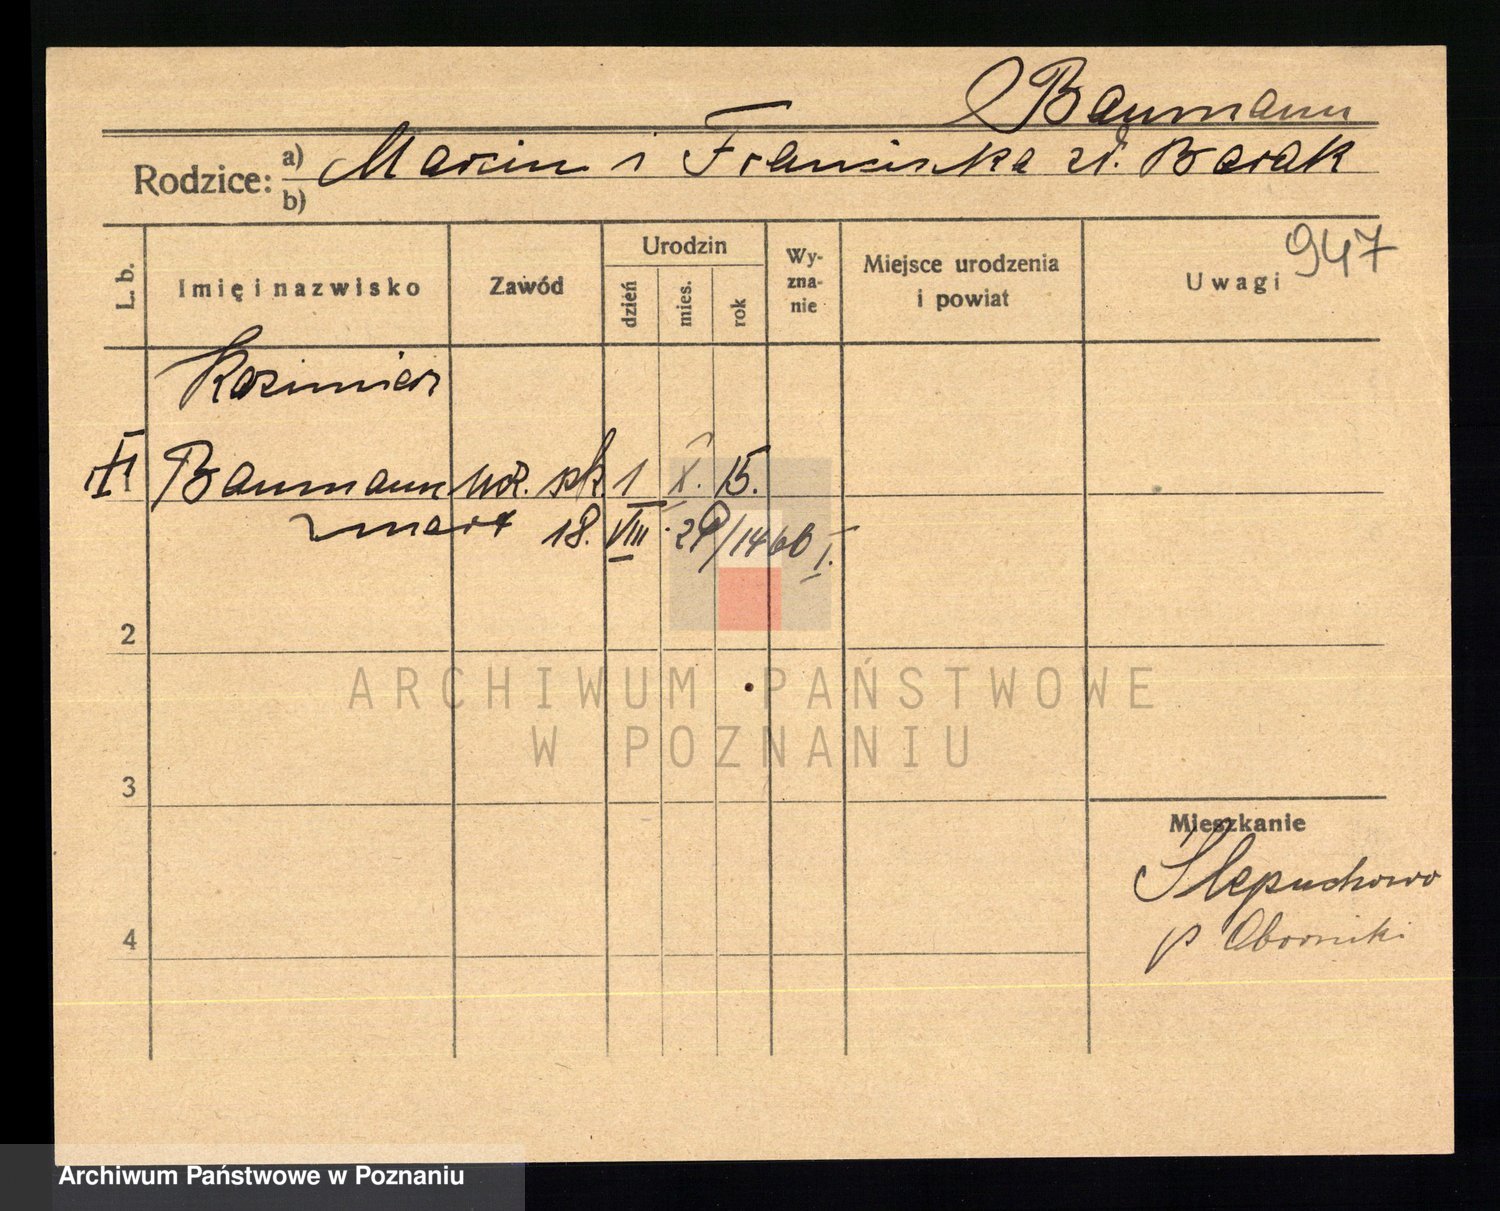 Baumann
Rodzice: a) Marcin i Franciszka zd. Barak
b)
947
L. b. Imię i nazwisko Zawód Urodzin dzień mies. rok Wyzna-nie Miejsce urodzenia i powiat Uwagi
Kazimierz
Baumann ucz. szk. 1 X. 15.
zmarł 18. VIII. 29/1460 I.
2
ARCHIWUM PAŃSTWOWE
W POZNANIU
3
Mieszkanie
Slepuchowo
4
p Oborniki
Archiwum Państwowe w Poznaniu